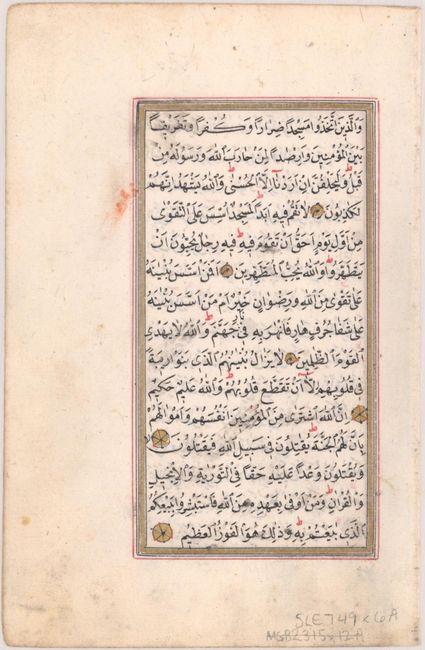 وَالَّذِينَ اتَّخَذُوا مَسْجِداً ضِرَاراً وَكُفْراً وَتَفْرِيقاً
بَيْنَ الْمُؤْمِنِينَ وَاِرْصَاداً لِمَنْ حَارَبَ اللّٰهَ وَرَسُولَهُ مِنْ
قَبْلُ وَلَيَحْلِفُنَّ اِنْ اَرَدْنَا اِلَّا الْحُسْنٰى وَاللّٰهُ يَشْهَدُ اِنَّهُمْ
لَكَاذِبُونَ لَا تَقُمْ فِيهِ اَبَداً لَمَسْجِدٌ اُسِّسَ عَلَى التَّقْوٰى
مِنْ اَوَّلِ يَوْمٍ اَحَقُّ اَنْ تَقُومَ فِيهِ فِيهِ رِجَالٌ يُحِبُّونَ اَنْ
يَتَطَهَّرُوا وَاللّٰهُ يُحِبُّ الْمُطَّهِّرِينَ اَفَمَنْ اَسَّسَ بُنْيَانَهُ
عَلٰى تَقْوٰى مِنَ اللّٰهِ وَرِضْوَانٍ خَيْرٌ اَمْ مَنْ اَسَّسَ بُنْيَانَهُ
عَلٰى شَفَا جُرُفٍ هَارٍ فَانْهَارَ بِهِ فِى نَارِ جَهَنَّمَ وَاللّٰهُ لَا يَهْدِى
الْقَوْمَ الظَّالِمِينَ لَا يَزَالُ بُنْيَانُهُمُ الَّذِى بَنَوْا رِيبَةً
فِى قُلُوبِهِمْ اِلَّا اَنْ تَقَطَّعَ قُلُوبُهُمْ وَاللّٰهُ عَلِيمٌ حَكِيمٌ
اِنَّ اللّٰهَ اشْتَرٰى مِنَ الْمُؤْمِنِينَ اَنْفُسَهُمْ وَاَمْوَالَهُمْ
بِاَنَّ لَهُمُ الْجَنَّةَ يُقَاتِلُونَ فِى سَبِيلِ اللّٰهِ فَيَقْتُلُونَ
وَيُقْتَلُونَ وَعْداً عَلَيْهِ حَقاًّ فِى التَّوْرٰيةِ وَالْاِنْجِيلِ
وَالْقُرْاٰنِ وَمَنْ اَوْفٰى بِعَهْدِهِ مِنَ اللّٰهِ فَاسْتَبْشِرُوا بِبَيْعِكُمُ
الَّذِى بَايَعْتُمْ بِهِ وَذٰلِكَ هُوَ الْفَوْزُ الْعَظِيمُ
SLE749 x 6A
MGB2315x12A